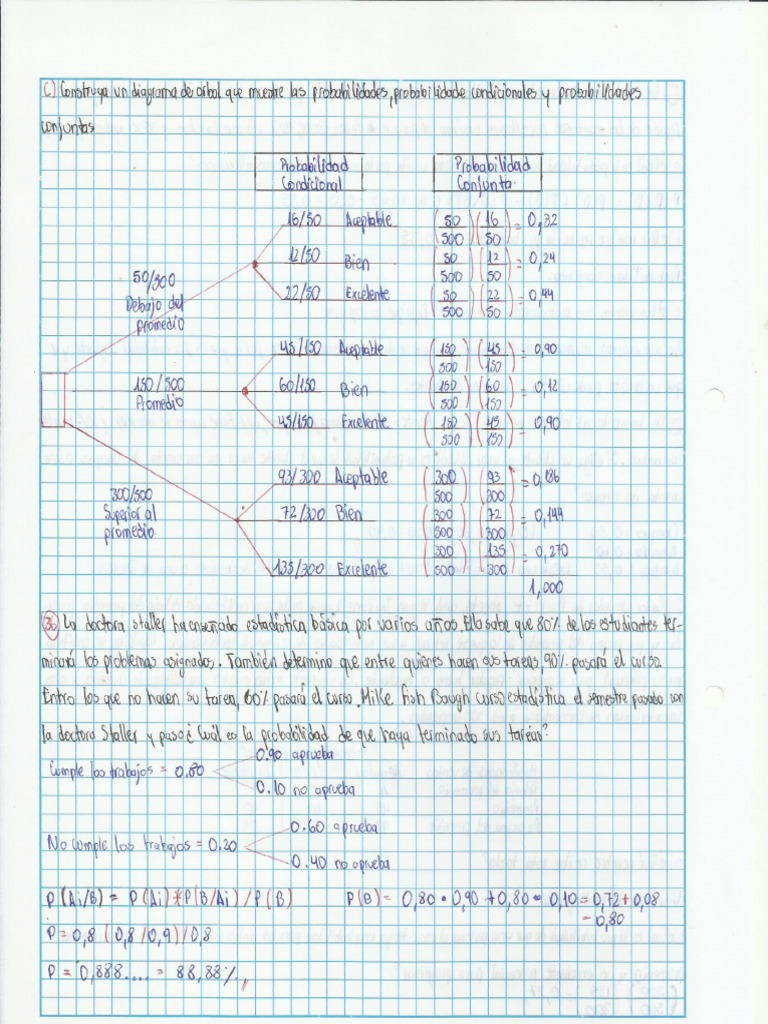 C) Construya un diagrama de arbol que muestre las probabilidades, probabilidade condicionales y probabilidades
conjuntas
Probabilidad Condicional
Probabilidad Conjunta.
50/500 Debajo del promedio
16/50 Aceptable (50/500)(16/50) = 0,32
12/50 Bien (50/500)(12/50) = 0,24
22/50 Excelente (50/500)(22/50) = 0,44
150/500 Promedio
45/150 Aceptable (150/500)(45/150) = 0,90
60/150 Bien (150/500)(60/150) = 0,12
45/150 Excelente (150/500)(45/150) = 0,90
300/500 Superior al promedio.
93/300 Aceptable (300/500)(93/300) = 0,186
72/300 Bien (300/500)(72/300) = 0,144
135/300 Excelente (300/500)(135/300) = 0,270
1,000
36) La doctora Staller ha enseñado estadística básica por varios años. Ella sabe que 80% de los estudiantes ter-
minará los problemas asignados. También determino que entre quienes hacen sus tareas, 90% pasará el curso.
Entro los que no hacen su tarea, 60% pasará el curso. Mike Fish Baugh curso estadística el semestre pasado con
la doctora Staller y paso ¿Cuál es la probabilidad de que haya terminado sus tareas?
Cumple los trabajos = 0.80
0.90 aprueba
0.10 no aprueba
No cumple los trabajos = 0.20
0.60 aprueba
0.40 no aprueba
P (Ai/B) = P (Ai) * P (B/Ai) / P (B) P(B) = 0,80 • 0,90 + 0,80 • 0,10 = 0,72 + 0,08
= 0,80
P = 0,8 (0,8/0,9) / 0,8
P = 0,888.... = 88,88%